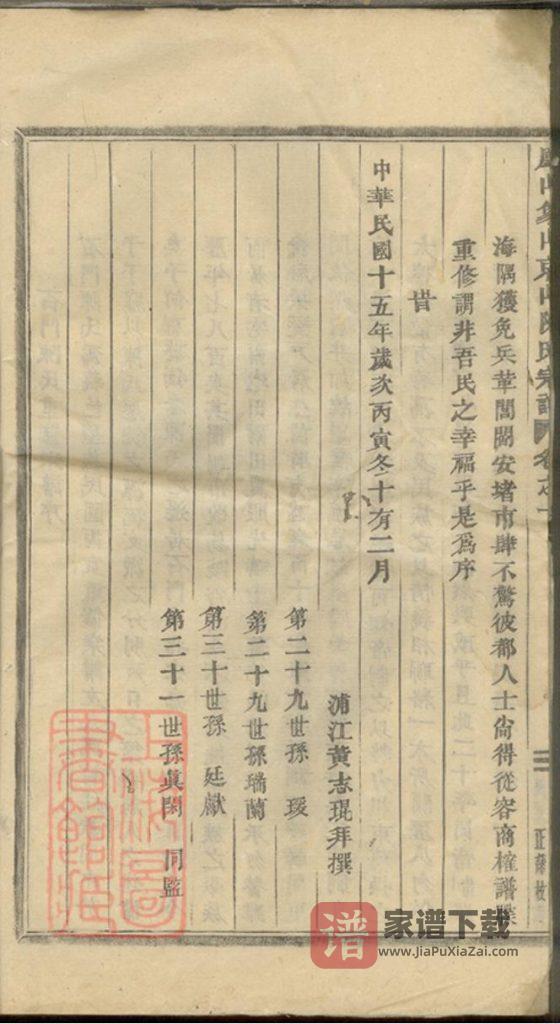 海隅獲免兵革閭閻安堵市肆不驚彼都人士尙得從容商榷譜牒
重修謂非吾民之幸福乎是爲序
旹
中華民國十五年歲次丙寅冬十有二月
浦江黃志琨拜撰
第二十九世孫 瑗
第二十九世孫瑞蘭
第三十世孫 廷獻
第三十一世孫眞閑 同監
陳氏宗譜
三
上海圖書館藏
譜 家谱下载
www.JiaPuXiaZai.com